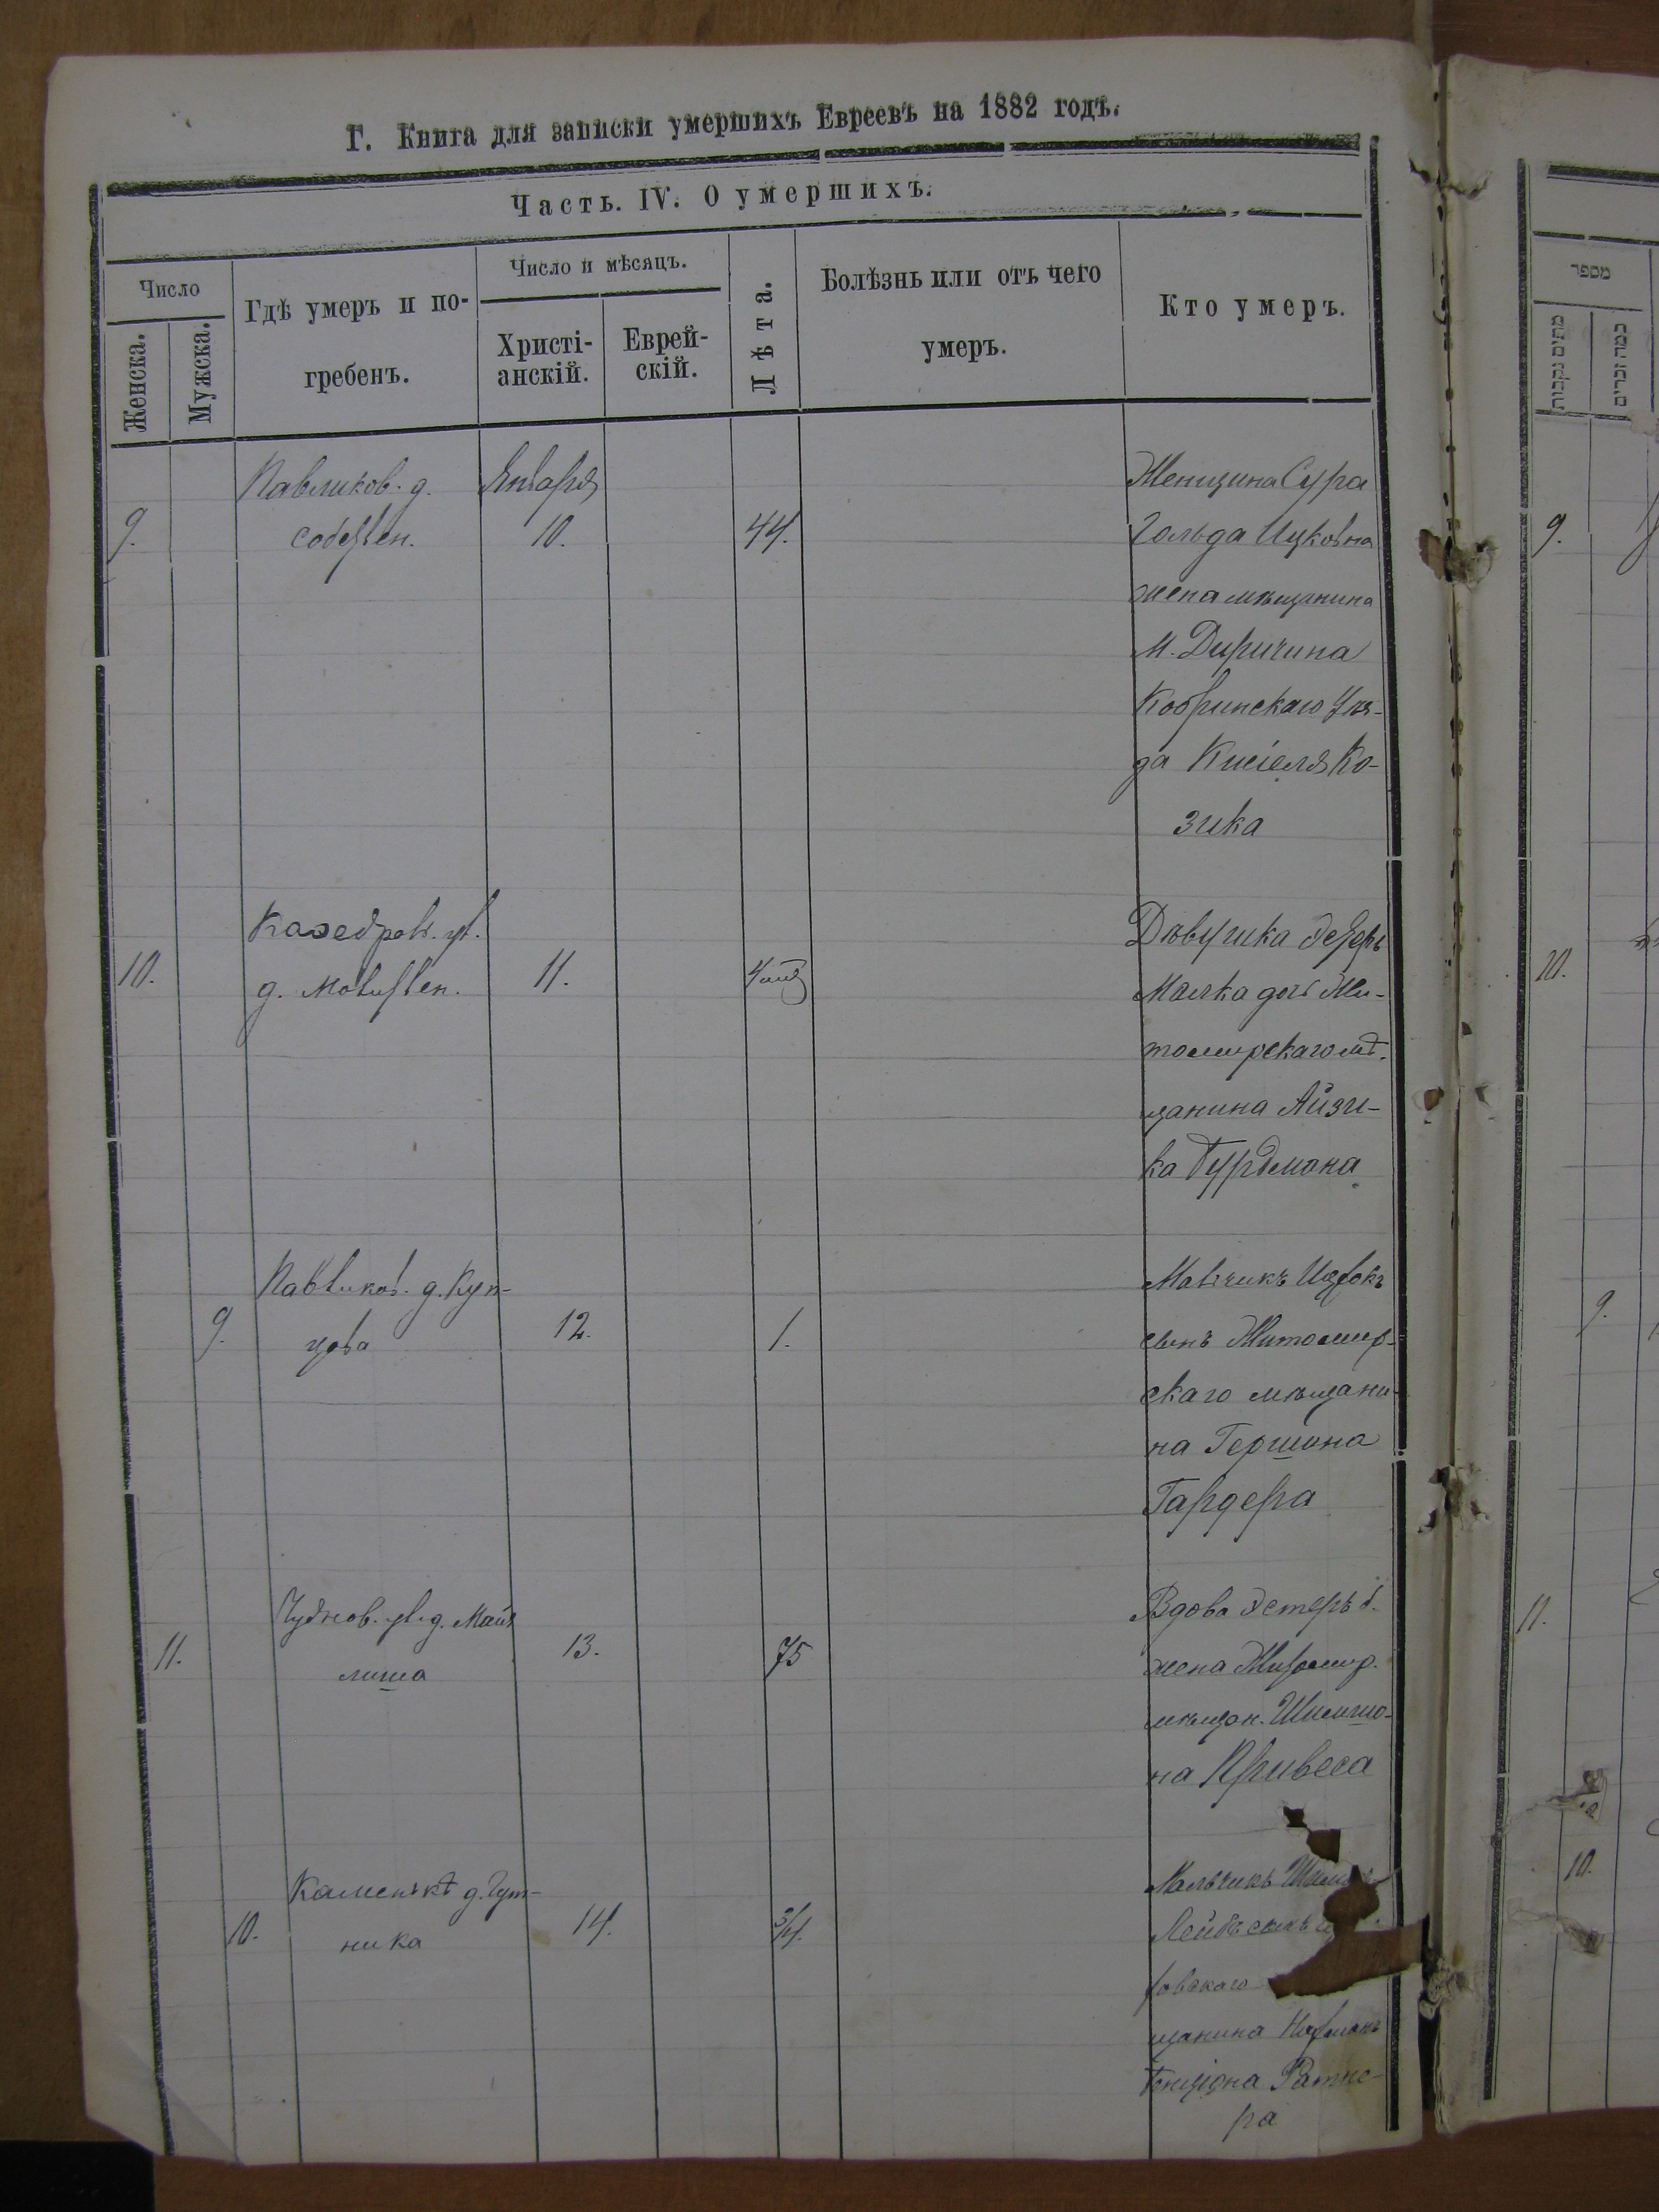 Г. Книга для записки умершихъ Евреевъ на 1882 годъ.
Часть. IV. О умершихъ.
Число
Женска.
Мужска.
Гдѣ умеръ и по-
гребенъ.
Число и мѣсяцъ.
Христі-
анскій.
Еврей-
скій.
Лѣта.
Болѣзнь или отъ чего
умеръ.
Кто умеръ.
9.
Павликов. д.
собствен.
Января
10.
44.
Женщина Сура
Гольда Ицковна
жена мѣщанина
м. Диричина
Кобринскаго Уѣз-
да Кисіеля Ко-
зика
10.
д.
11.
Дѣвушка Эстеръ
Малка дочь Жи-
томирскаго мѣ-
щанина Айзи-
ка Гурвмана
9.
Павликов. д. Куп-
цова
12.
1.
Мальчикъ Ицхокъ
сынъ Житомир-
скаго мѣщани-
на Гершона
Гардера
11.
Чуднов. ул. д.
лиша
13.
75
Вдова Эстеръ б.
жена Житомир.
мѣщан. Шимшо-
на Кривеса
10.
Каменькѣ д. Гут-
ника
14.
3/4.
Мальчикъ
Лейбъ сынъ
щанина Нахмана
Бенціона Ратне-
ра
מספר
מתים נקבות
כמה זכרים
9.
10.
9.
11.
10.